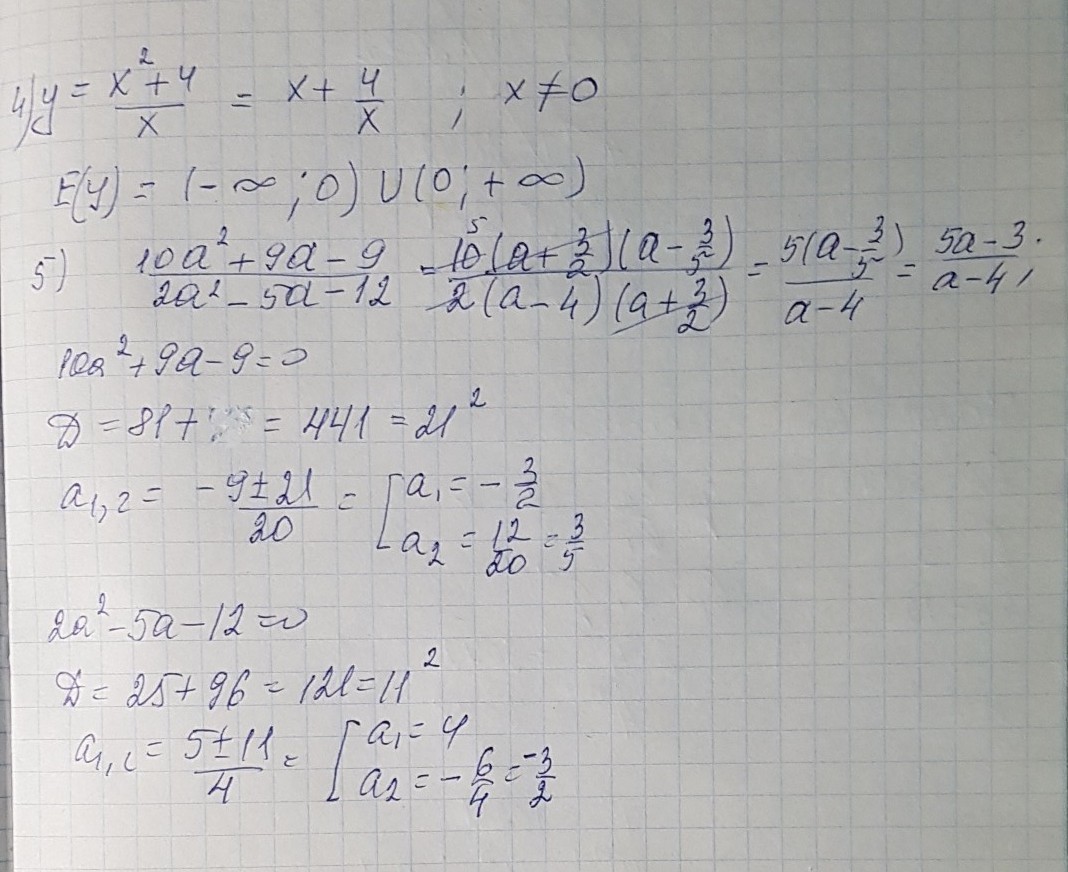 4) y = (x² + 4)/x = x + 4/x ; x ≠ 0
E(y) = (-∞; 0) ∪ (0; +∞)
5) (10a² + 9a - 9)/(2a² - 5a - 12) = 10 5 (a + 3/2)(a - 3/5)/(2(a - 4)(a + 3/2)) = 5(a - 3/5)/(a - 4) = (5a - 3)/(a - 4);
10a² + 9a - 9 = 0
D = 81 + = 441 = 21²
a₁,₂ = (-9 ± 21)/20 = [ a₁ = - 3/2
a₂ = 12/20 = 3/5
2a² - 5a - 12 = 0
D = 25 + 96 = 121 = 11²
a₁,₂ = (5 ± 11)/4 = [ a₁ = 4
a₂ = - 6/4 = -3/2